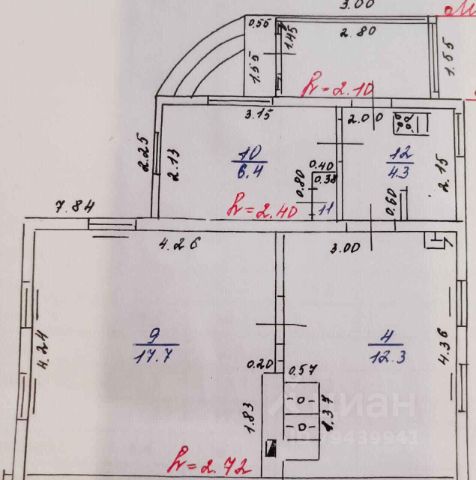 3.00
0.55
1.45
2.80
1.55
1.55
h=2.10
3.15
2.00
2.25
2.13
10
6.4
0.40
0.38
0.80
11
12
4.3
2.15
0.60
h=2.40
7.84
4.26
3.00
4.24
9
17.7
4
12.3
4.36
0.20
0.57
1.83
1.37
h=2.72
циан